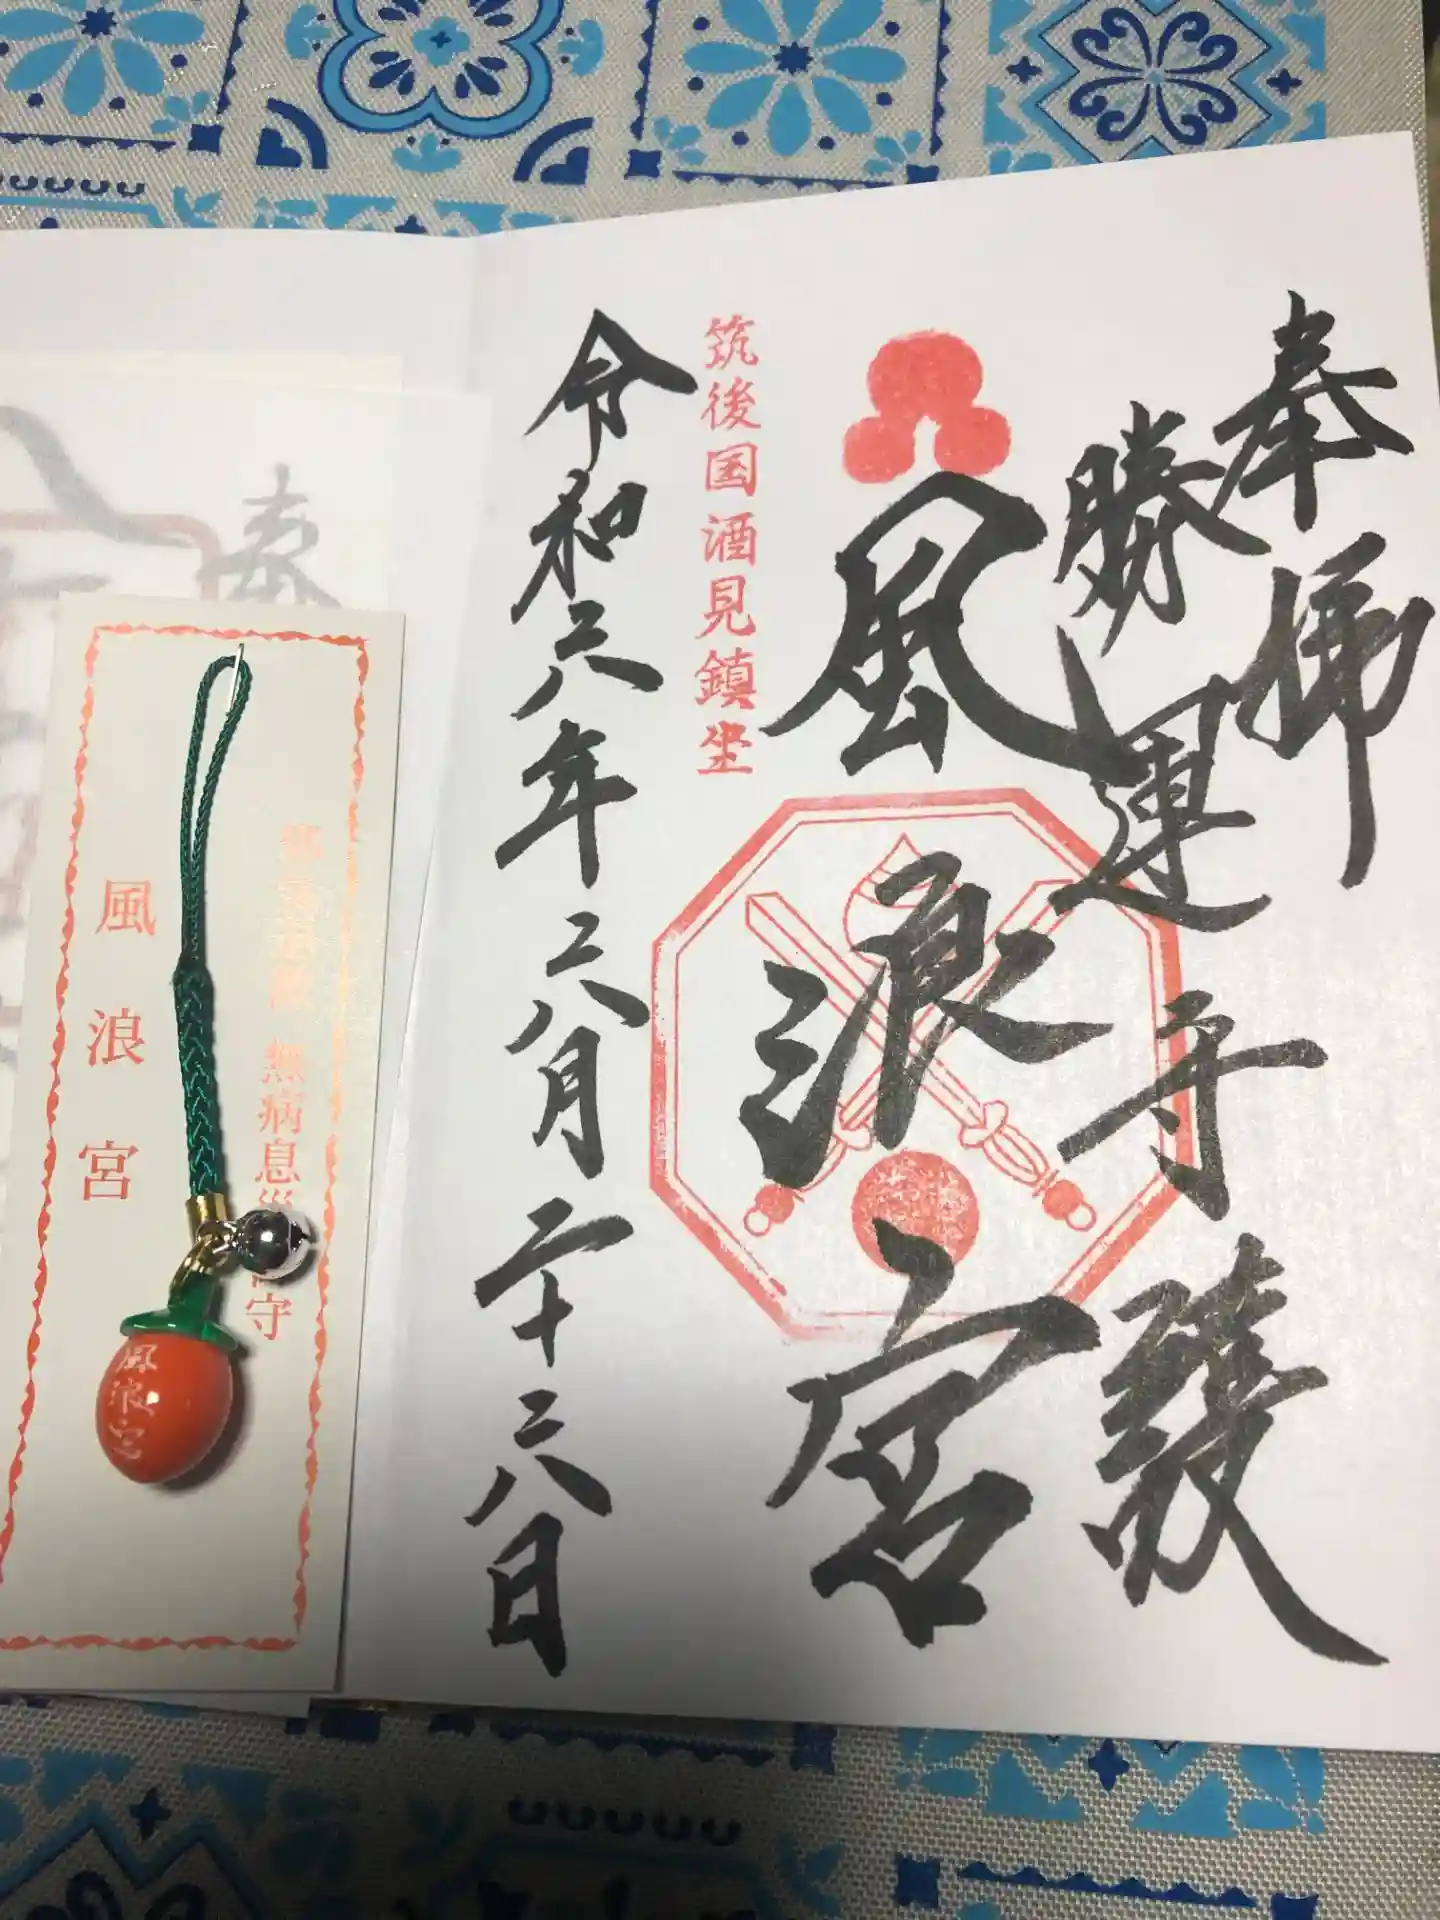 奉拝
勝運守護
風浪宮
筑後国酒見鎮坐
令和六年六月二十六日
無病息災
守
風浪宮
風浪宮
奉